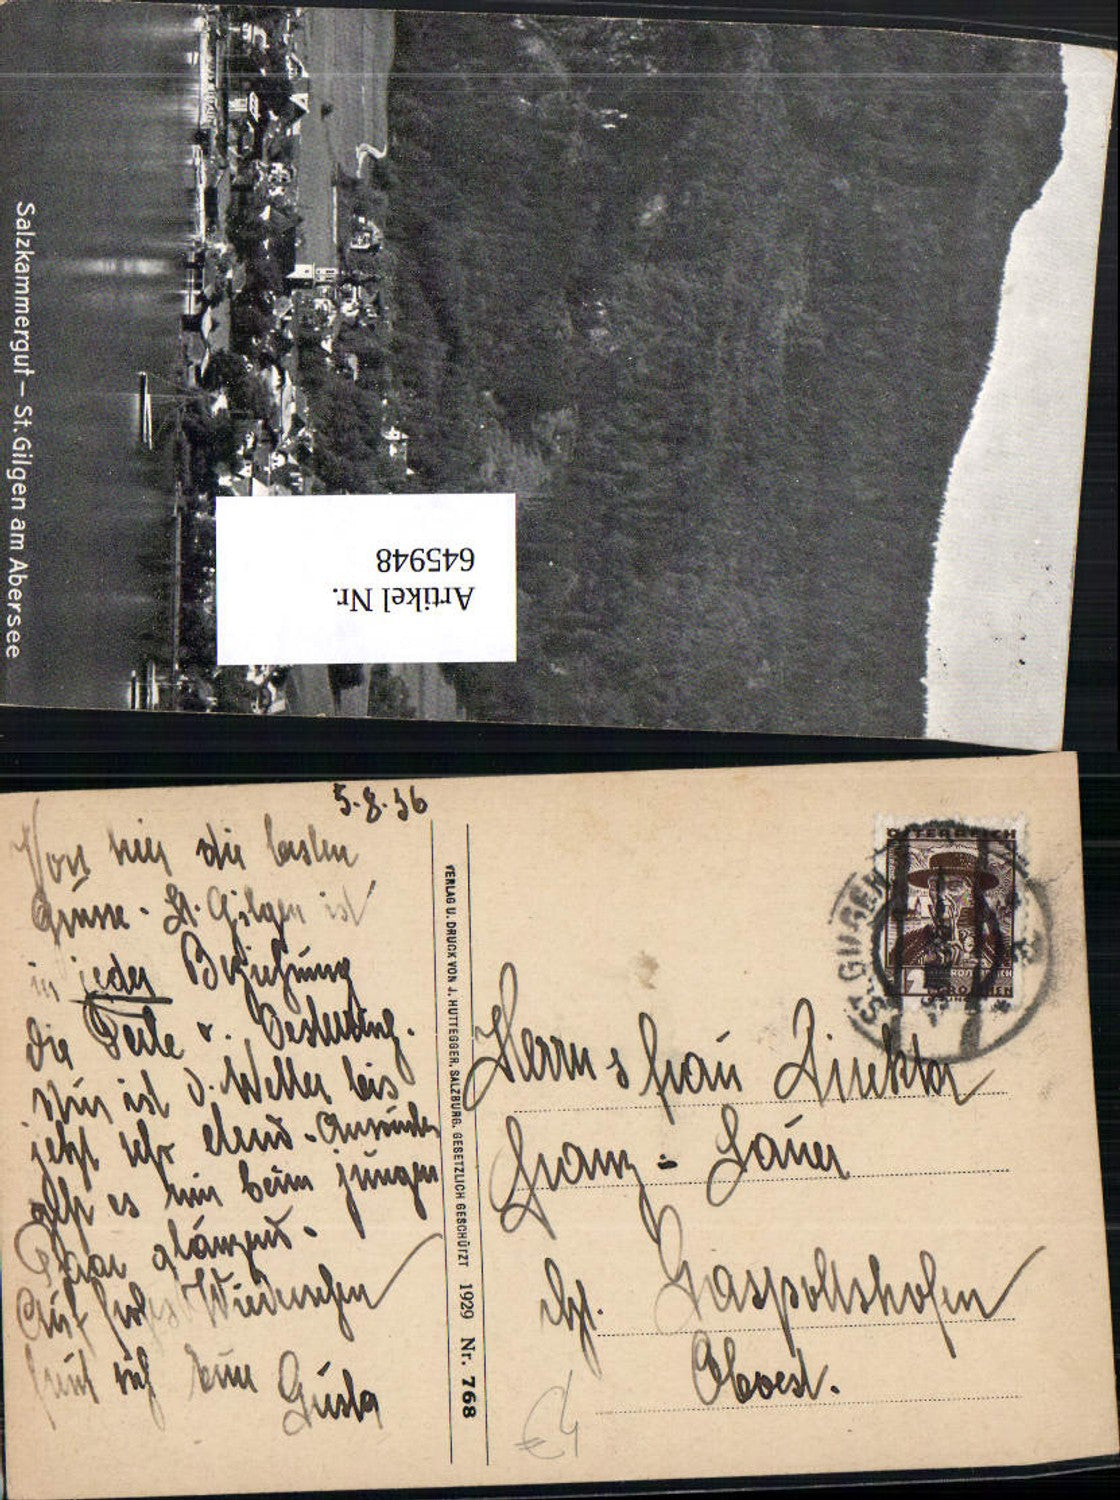 Salzkammergut – St. Gilgen am Abersee
Artikel Nr.
645948
5.8.36
Von hier die besten
Grüsse. St. Gilgen ist
in jeder Beziehung
die Perle v. Oesterr.
Nur ist d. Wetter bis
jetzt sehr elend. Ansonsten
geht es mir beim jungen
Paar glänzend.
Auf frohes Wiedersehen
freut sich Eure Gusta
VERLAG U. DRUCK VON J. HUTTEGGER, SALZBURG. GESETZLICH GESCHÜTZT 1929 Nr. 768
ÖSTERREICH
ST. GILGEN
Herrn & Frau Direktor
Franz - Sauer
Gaspoltshofen
Oboest.
€4